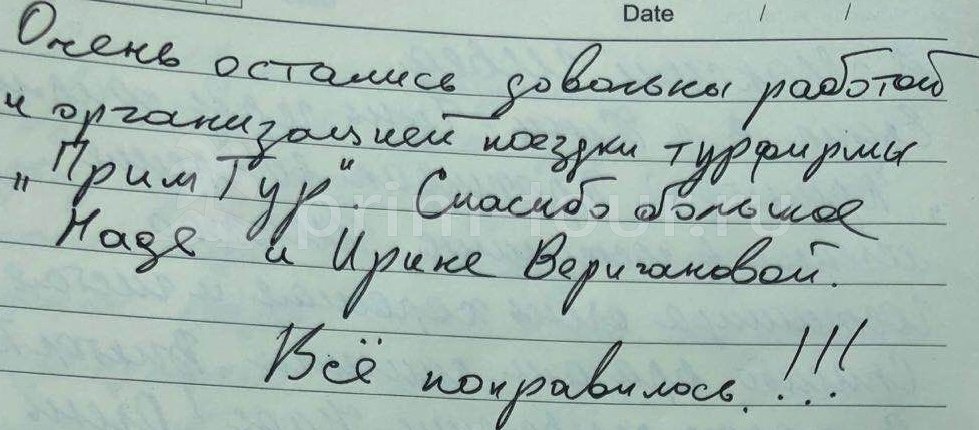 Date / /
Очень остались довольны работой
и организацией поездки турфирмы
„Прим Тур". Спасибо большое
Наде и Ирине Веригановой.
Всё понравилось!!!
prim-tour.ru